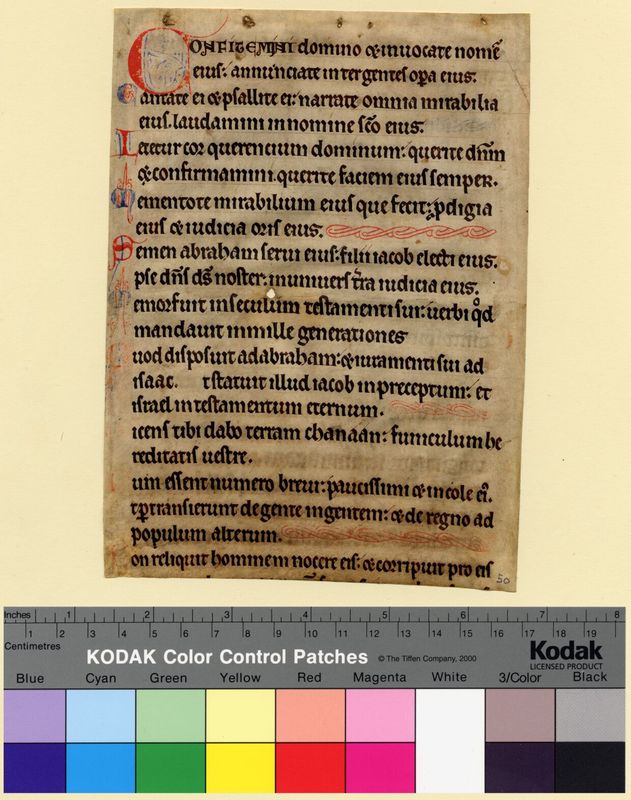 CONFITEMINI domino & inuocate nomē
eius: annunciate inter gentes opa eius.
Cantate ei & psallite ei: narrate omnia mirabilia
eius. laudamini in nomine sc̄o eius.
Letetur cor querencium dominum: querite dn̄m
& confirmamini. querite faciem eius semper.
Mementote mirabilium eius que fecit: pdigia
eius & iudicia oris eius.
Semen abraham serui eius: filii iacob electi eius.
pse dn̄s ds̄ noster: in uniuersa tra iudicia eius.
Memor fuit in seculum testamenti sui: uerbi qd
mandauit in mille generationes
uod disposuit ad abraham: & iuramenti sui ad
isaac. t statuit illud iacob in preceptum: et
israel in testamentum eternum.
icens tibi dabo terram chanaan: funiculum he
reditatis uestre.
um essent numero breui: paucissimi & incole ei.
t ptransierunt de gente in gentem: & de regno ad
populum alterum.
on reliquit hominem nocere eis: & corripuit pro eis
50
Inches 1 2 3 4 5 6 7 8
Centimetres 1 2 3 4 5 6 7 8 9 10 11 12 13 14 15 16 17 18 19
KODAK Color Control Patches © The Tiffen Company, 2000 Kodak
LICENSED PRODUCT
Blue Cyan Green Yellow Red Magenta White 3/Color Black